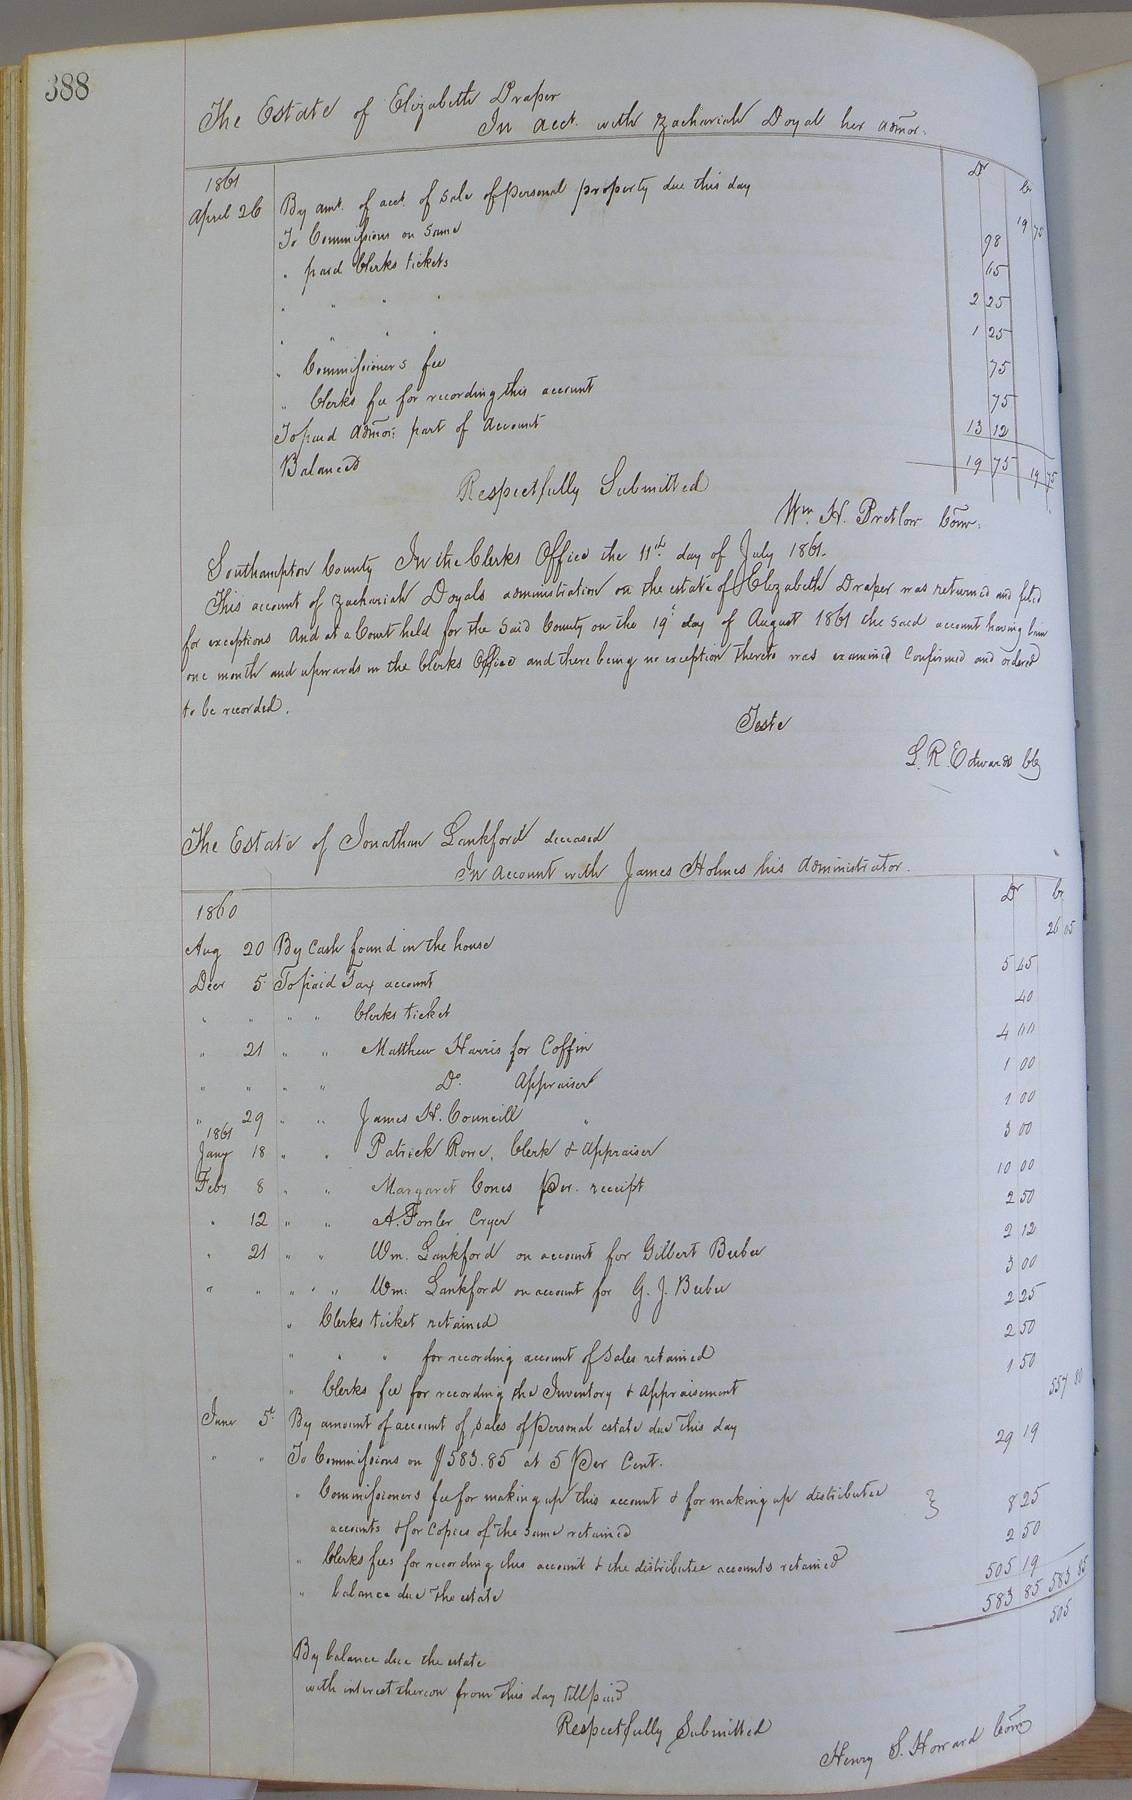 388
The Estate of Elizabeth Draper
In acct. with Zachariah Doyal her admor.
1861 Dr Cr
April 26 By amt. of acct. of sale of personal property due this day 19 75
To Commissions on same 98
" paid Clerks tickets 65
" " " " 2 25
" " " " 1 25
" Commissioners fee 75
" Clerks fee for recording this account 75
To paid admor: part of account 13 12
Balanced 19 75 19 75
Respectfully Submitted
Wm. H. Pretlow Comr.
Southampton County In the Clerks Office the 11th day of July 1861.
This account of Zachariah Doyals administration on the estate of Elizabeth Draper was returned and filed
for exceptions And at a Court held for the said County on the 19th day of August 1861 the said account having been
one month and upwards in the Clerks Office and there being no exception thereto was examined confirmed and ordered
to be recorded.
Teste
L. R. Edwards Clk
The Estate of Jonathan Lankford deceased
In account with James Holmes his administrator.
1860 Dr Cr
Aug 20 By Cash found in the house 26 05
Decr 5 To paid Tax account 5 45
" " " " Clerks ticket 40
" 21 " " Matthew Harris for Coffin 4 00
" " " " Do. Appraiser 1 00
" 29 " " James H. Councill " 1 00
1861
Jany 18 " " Patrick Rowe, Clerk & Appraiser 3 00
Feby 8 " " Margaret Cones per. receipt 10 00
" 12 " " A. Fowler Cryer 2 50
" 21 " " Wm. Lankford on account for Gilbert Beebee 2 12
" " " " " Wm: Lankford on account for G. J. Beebee 3 00
" Clerks ticket retained 2 25
" " " for recording account of sales retained 2 50
" Clerks fee for recording the Inventory & appraisement 1 50
June 5th By amount of account of sales of personal estate due this day 557 80
" " To Commissions on $583.85 at 5 per Cent. 29 19
" Commissioners fee for making up this account & for making up distributee
accounts & for copies of the same retained } 8 25
" Clerks fees for recording this account & the distributee accounts retained 2 50
" balance due the estate 505 19
583 85 583 85
By balance due the estate 505
with interest thereon from this day till paid
Respectfully Submitted
Henry S. Howard Comr